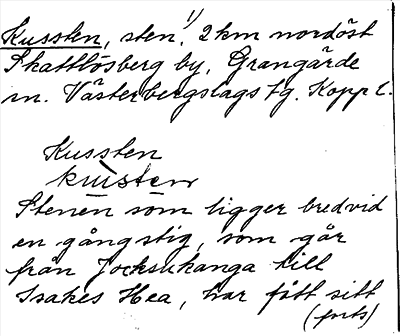 Kussten, sten, 1) 2 km nordöst
Skattlösberg by, Grangärde
sn. Västerbergslags tg. Kopp l.
Kussten
Stenen som ligger bredvid
en gångstig, som går
från Jocksukanga till
Isakes Hea, har fått sitt
(forts)